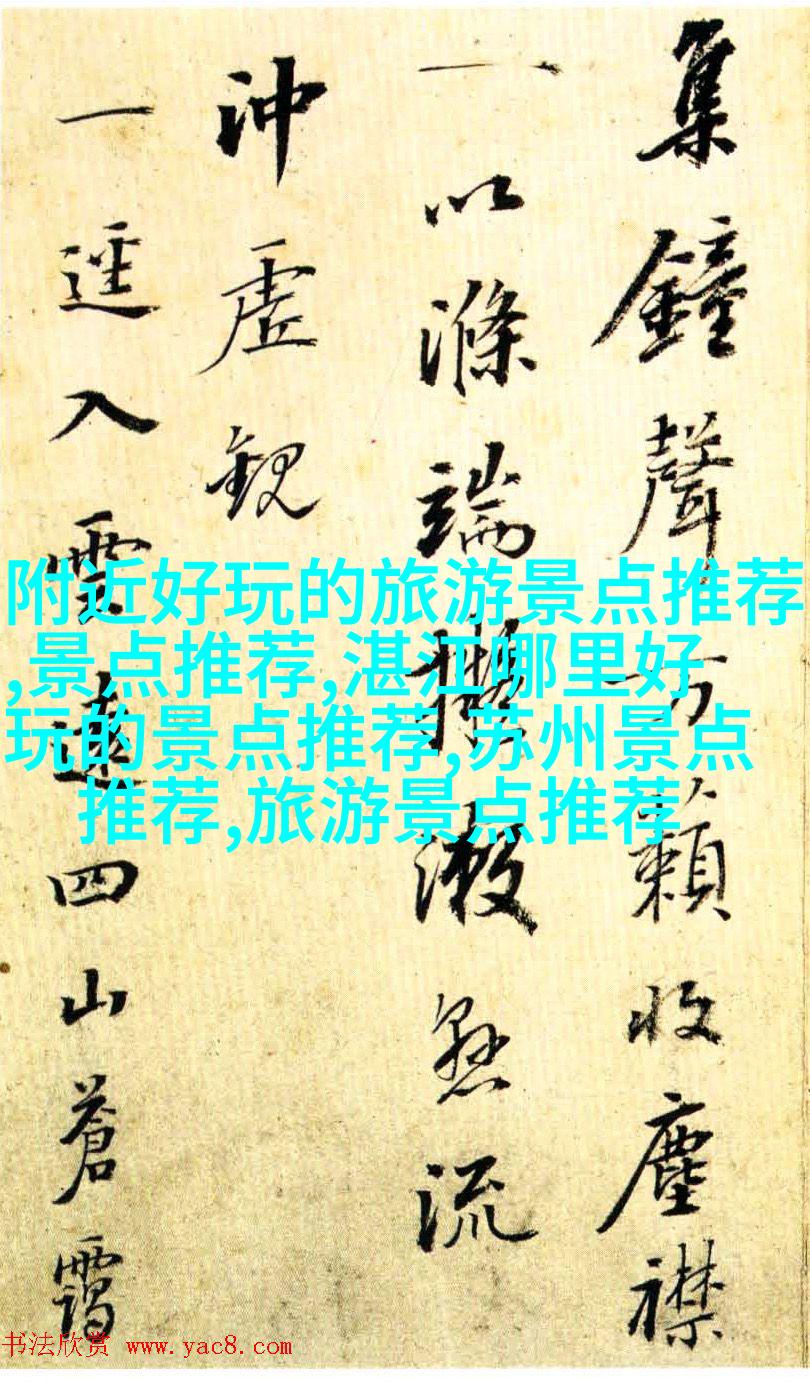 集鐘聲方籟收塵襟
一以滌端擬漱懸流
沖虛觀
一逕入雲遠四山蒼靄
附近好玩的旅游景点推荐
,景点推荐,湛江哪里好
玩的景点推荐,苏州景点
推荐,旅游景点推荐
书法欣赏 www.yac8.com